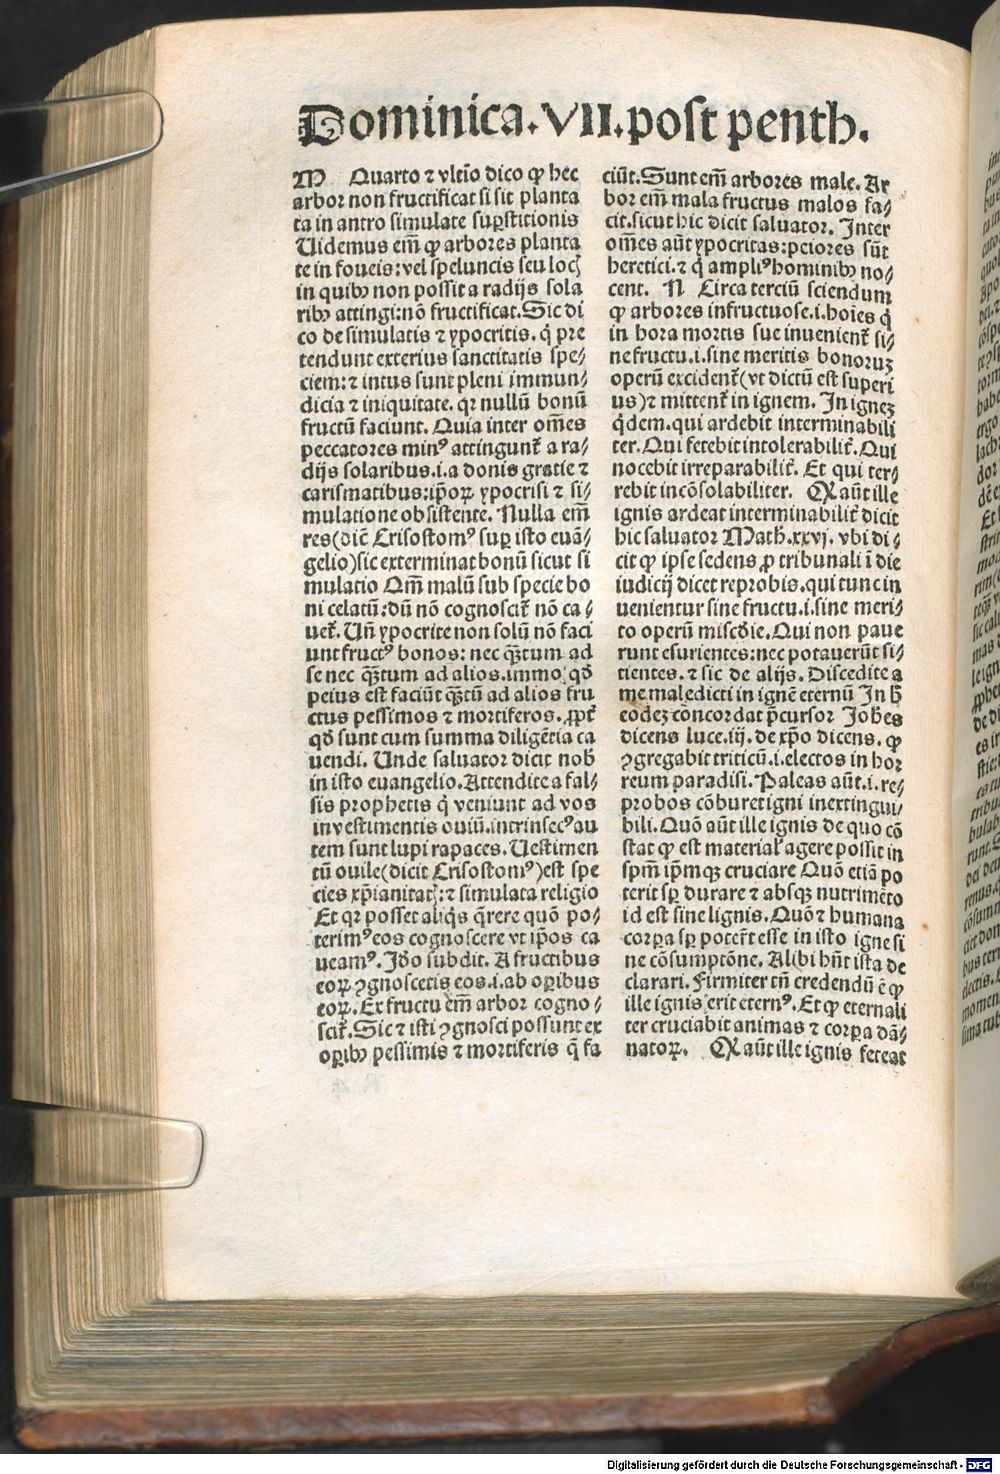 Dominica.VII.post penth.
M Quarto ⁊ vltīo dico ꝙ hec
arbor non fructificat si sit planta
ta in antro simulate suꝑstitionis
Uidemus em̄ ꝙ arbores planta
te in foueis: vel speluncis seu locꝭ
in quibꝰ non possit a radijs sola
ribꝰ attingi: nō fructificat. Sic di
co de simulatis ⁊ ypocritis. q̇ pre
tendunt exterius sanctitatis spe⸗
ciem: ⁊ intus sunt pleni immun⸗
dicia ⁊ iniquitate. qꝛ nullū bonū
fructū faciunt. Quia inter om̄es
peccatores minꝰ attingunt᷑ a ra⸗
dijs solaribus .i. a donis gratie ⁊
carismatibus: ip̄oꝝ ypocrisi ⁊ si⸗
mulatione obsistente. Nulla em̄
res (dic̄ Crisostomꝰ suꝑ isto euā⸗
gelio) sic exterminat bonū sicut si
mulatio Qm̄ malū sub specie bo
ni celatū: dū nō cognoscit᷑ nō ca⸗
uet᷑. Un̄ ypocrite non solū nō faci
unt fructꝰ bonos: nec qꝫ̄tum ad
se nec qꝫ̄tum ad alios. immo qđ
peius est faciūt qꝫ̄tū ad alios fru
ctus pessimos ⁊ mortiferos. ꝓpt᷑
qđ sunt cum summa diligētia ca
uendi. Unde saluator dicit nob̄
in isto euangelio. Attendite a fal⸗
sis prophetis q̇ veniunt ad vos
in vestimentis ouiū. intrinsecꝰ au
tem sunt lupi rapaces. Uestimen
tū ouile (dicit Crisostomꝰ) est spe
cies xp̄ianitatꝭ: ⁊ simulata religio
Et qꝛ posset aliq̇s q̄rere quō po⸗
terimꝰ eos cognoscere vt ip̄os ca
ueamꝰ. Iđo subdit. A fructibus
eoꝝ ꝯgnoscetis eos .i. ab oꝑibus
eoꝝ. Ex fructu em̄ arbor cogno⸗
scit᷑. Sic ⁊ isti ꝯgnosci possunt ex
oꝑibꝰ pessimis ⁊ mortiferis q̄ fa
ciūt. Sunt em̄ arbores male. Ar
bor em̄ mala fructus malos fa⸗
cit. sicut hic dicit saluator. Inter
om̄es aūt ypocritas: peiores sūt
heretici. ⁊ q̇ ampliꝰ hominibꝰ no⸗
cent. N Circa terciū sciendum
ꝙ arbores infructuose .i. hoīes q̇
in hora mortis sue inuenient᷑ si⸗
ne fructu .i. sine meritis bonoruꝫ
operū excident᷑ (vt dictū est superi
us) ⁊ mittent᷑ in ignem. In igneꝫ
q̇dem. qui ardebit interminabili
ter. Qui fetebit intolerabilit᷑. Qui
nocebit irreparabilit᷑. Et qui ter⸗
rebit incōsolabiliter. Qꝙ aūt ille
ignis ardeat interminabilit᷑ dicit
hic saluator Math. xxvj. vbi di⸗
cit ꝙ ipse sedens ꝓ tribunali ī die
iudicij dicet reprobis. qui tunc in
uenientur sine fructu .i. sine meri⸗
to operū miscđie. Qui non paue
runt esurientes: nec potauerūt si⸗
tientes. ⁊ sic de alijs. Discedite a
me maledicti in ignē eternū In ħ
eodeꝫ concordat p̄cursor Joh̄es
dicens luce. iij. de xp̄o dicens. ꝙ
ꝯgregabit triticū .i. electos in hor
reum paradisi. Paleas aūt .i. re⸗
probos cōburet igni inextingui⸗
bili. Quō aūt ille ignis de quo cō
stat ꝙ est material᷑ agere possit in
spm̄ ip̄mqꝫ cruciare Quō etiā po
terit sꝑ durare ⁊ absqꝫ nutrimēto
id est sine lignis. Quō ⁊ humana
corꝑa sꝑ poter̄t esse in isto igne si
ne cōsumptōne. Alibi hn̄t ista de
clarari. Firmiter tn̄ credendū ē ꝙ
ille ignis erit eternꝰ. Et ꝙ eternali
ter cruciabit animas ⁊ corꝑa dā⸗
natoꝝ. Qꝙ aūt ille ignis feteat
Digitalisierung gefördert durch die Deutsche Forschungsgemeinschaft - DFG